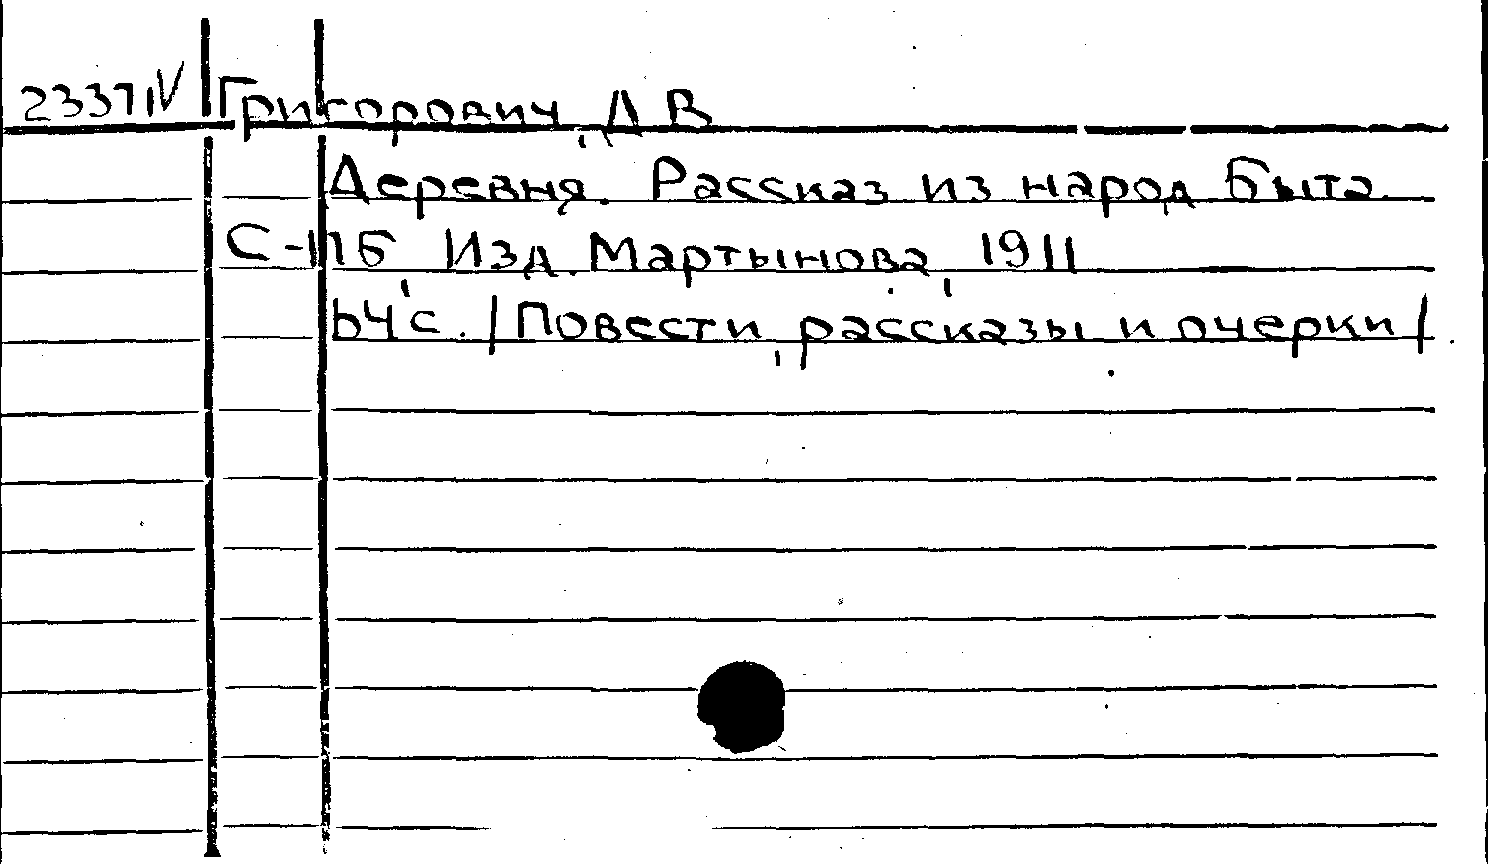 2337IV Григорович, Д В
Деревня. Рассказ из народ, быта.
С-ПБ, Изд. Мартынова, 1911
64 с. /Повести, рассказы и очерки/.